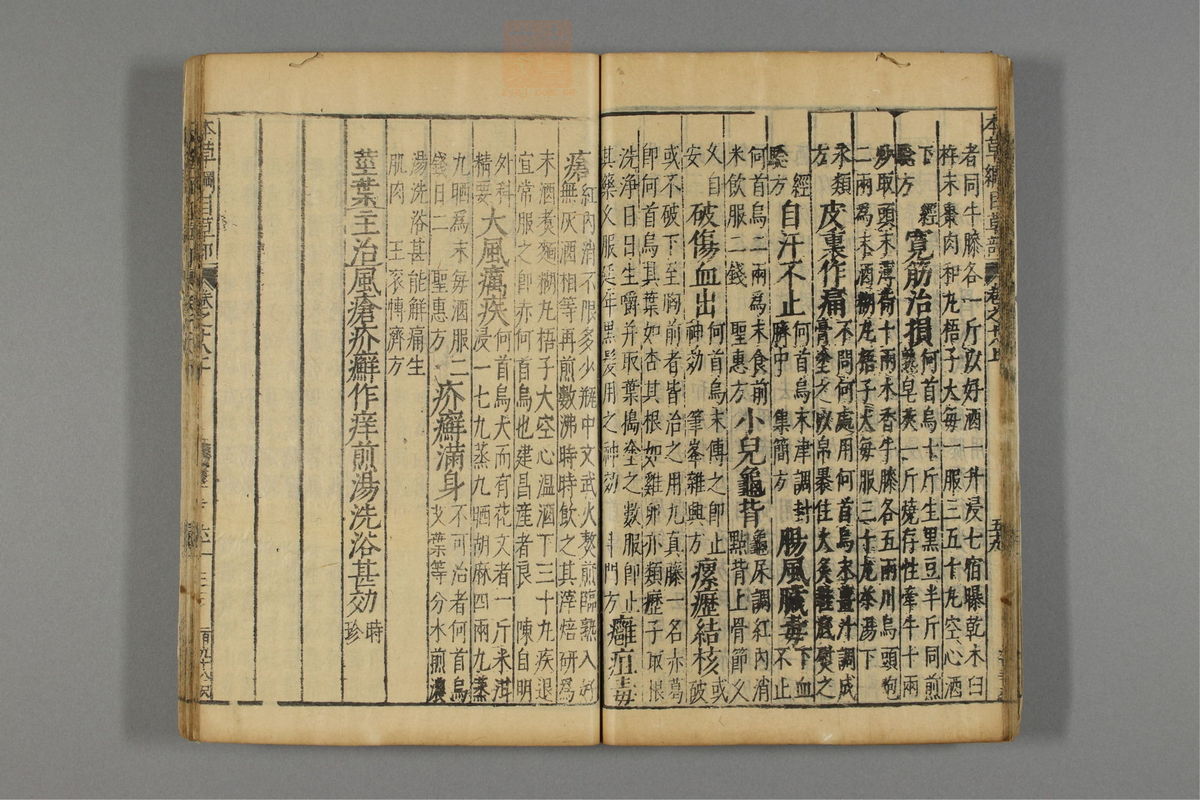 本草綱目草部 卷之十八上 五九
者同牛膝各一斤以好酒一升浸七宿曝乾木臼
杵末棗肉和丸梧子大每一服三五十丸空心酒
下 經驗方
寬筋治損
何首烏十斤生黑豆半斤同煎
熟皂莢一斤燒存性牽牛十兩
炒取頭末薄荷十兩木香牛膝各五兩川烏頭炮
二兩為末酒糊丸梧子大每服三十丸茶湯下
永類方
皮裏作痛
不問何處用何首烏末薑汁調成
膏塗之以帛裹住火炙鞋底熨之
經驗方
自汗不止
何首烏末津調封
臍中 集簡方
腸風臟毒
下血
不止
何首烏二兩為末食前
米飲服二錢 聖惠方
小兒龜背
龜尿調紅內消
點背上骨節久
久自安
破傷血出
何首烏末傅之即止
神効 筆峯雜興方
瘰癧結核
或破
或不破下至胸前者皆治之用九真藤一名赤葛
即何首烏其葉如杏其根如雞卵亦類癧子取根
洗淨日日生嚼并取葉搗塗之數服即止
其藥久服延年黑髮用之神効 斗門方
癰疽毒
瘡
紅內消不限多少瓶中文武火熬煎臨熟入好
無灰酒相等再煎數沸時時飲之其滓焙研為
末酒煮麵糊丸梧子大空心溫酒下三十丸疾退
宜常服之即赤何首烏也建昌產者良 陳自明
外科精要
大風癘疾
何首烏大而有花文者一斤米泔
浸一七九蒸九晒胡麻四兩九蒸
九晒為末每酒服二
錢日二 聖惠方
疥癬滿身
不可治者何首烏
艾葉等分水煎濃
湯洗浴甚能解痛生
肌肉 王袞博濟方
莖葉主治風瘡疥癬作痒煎湯洗浴甚効 時珍
本草綱目草部